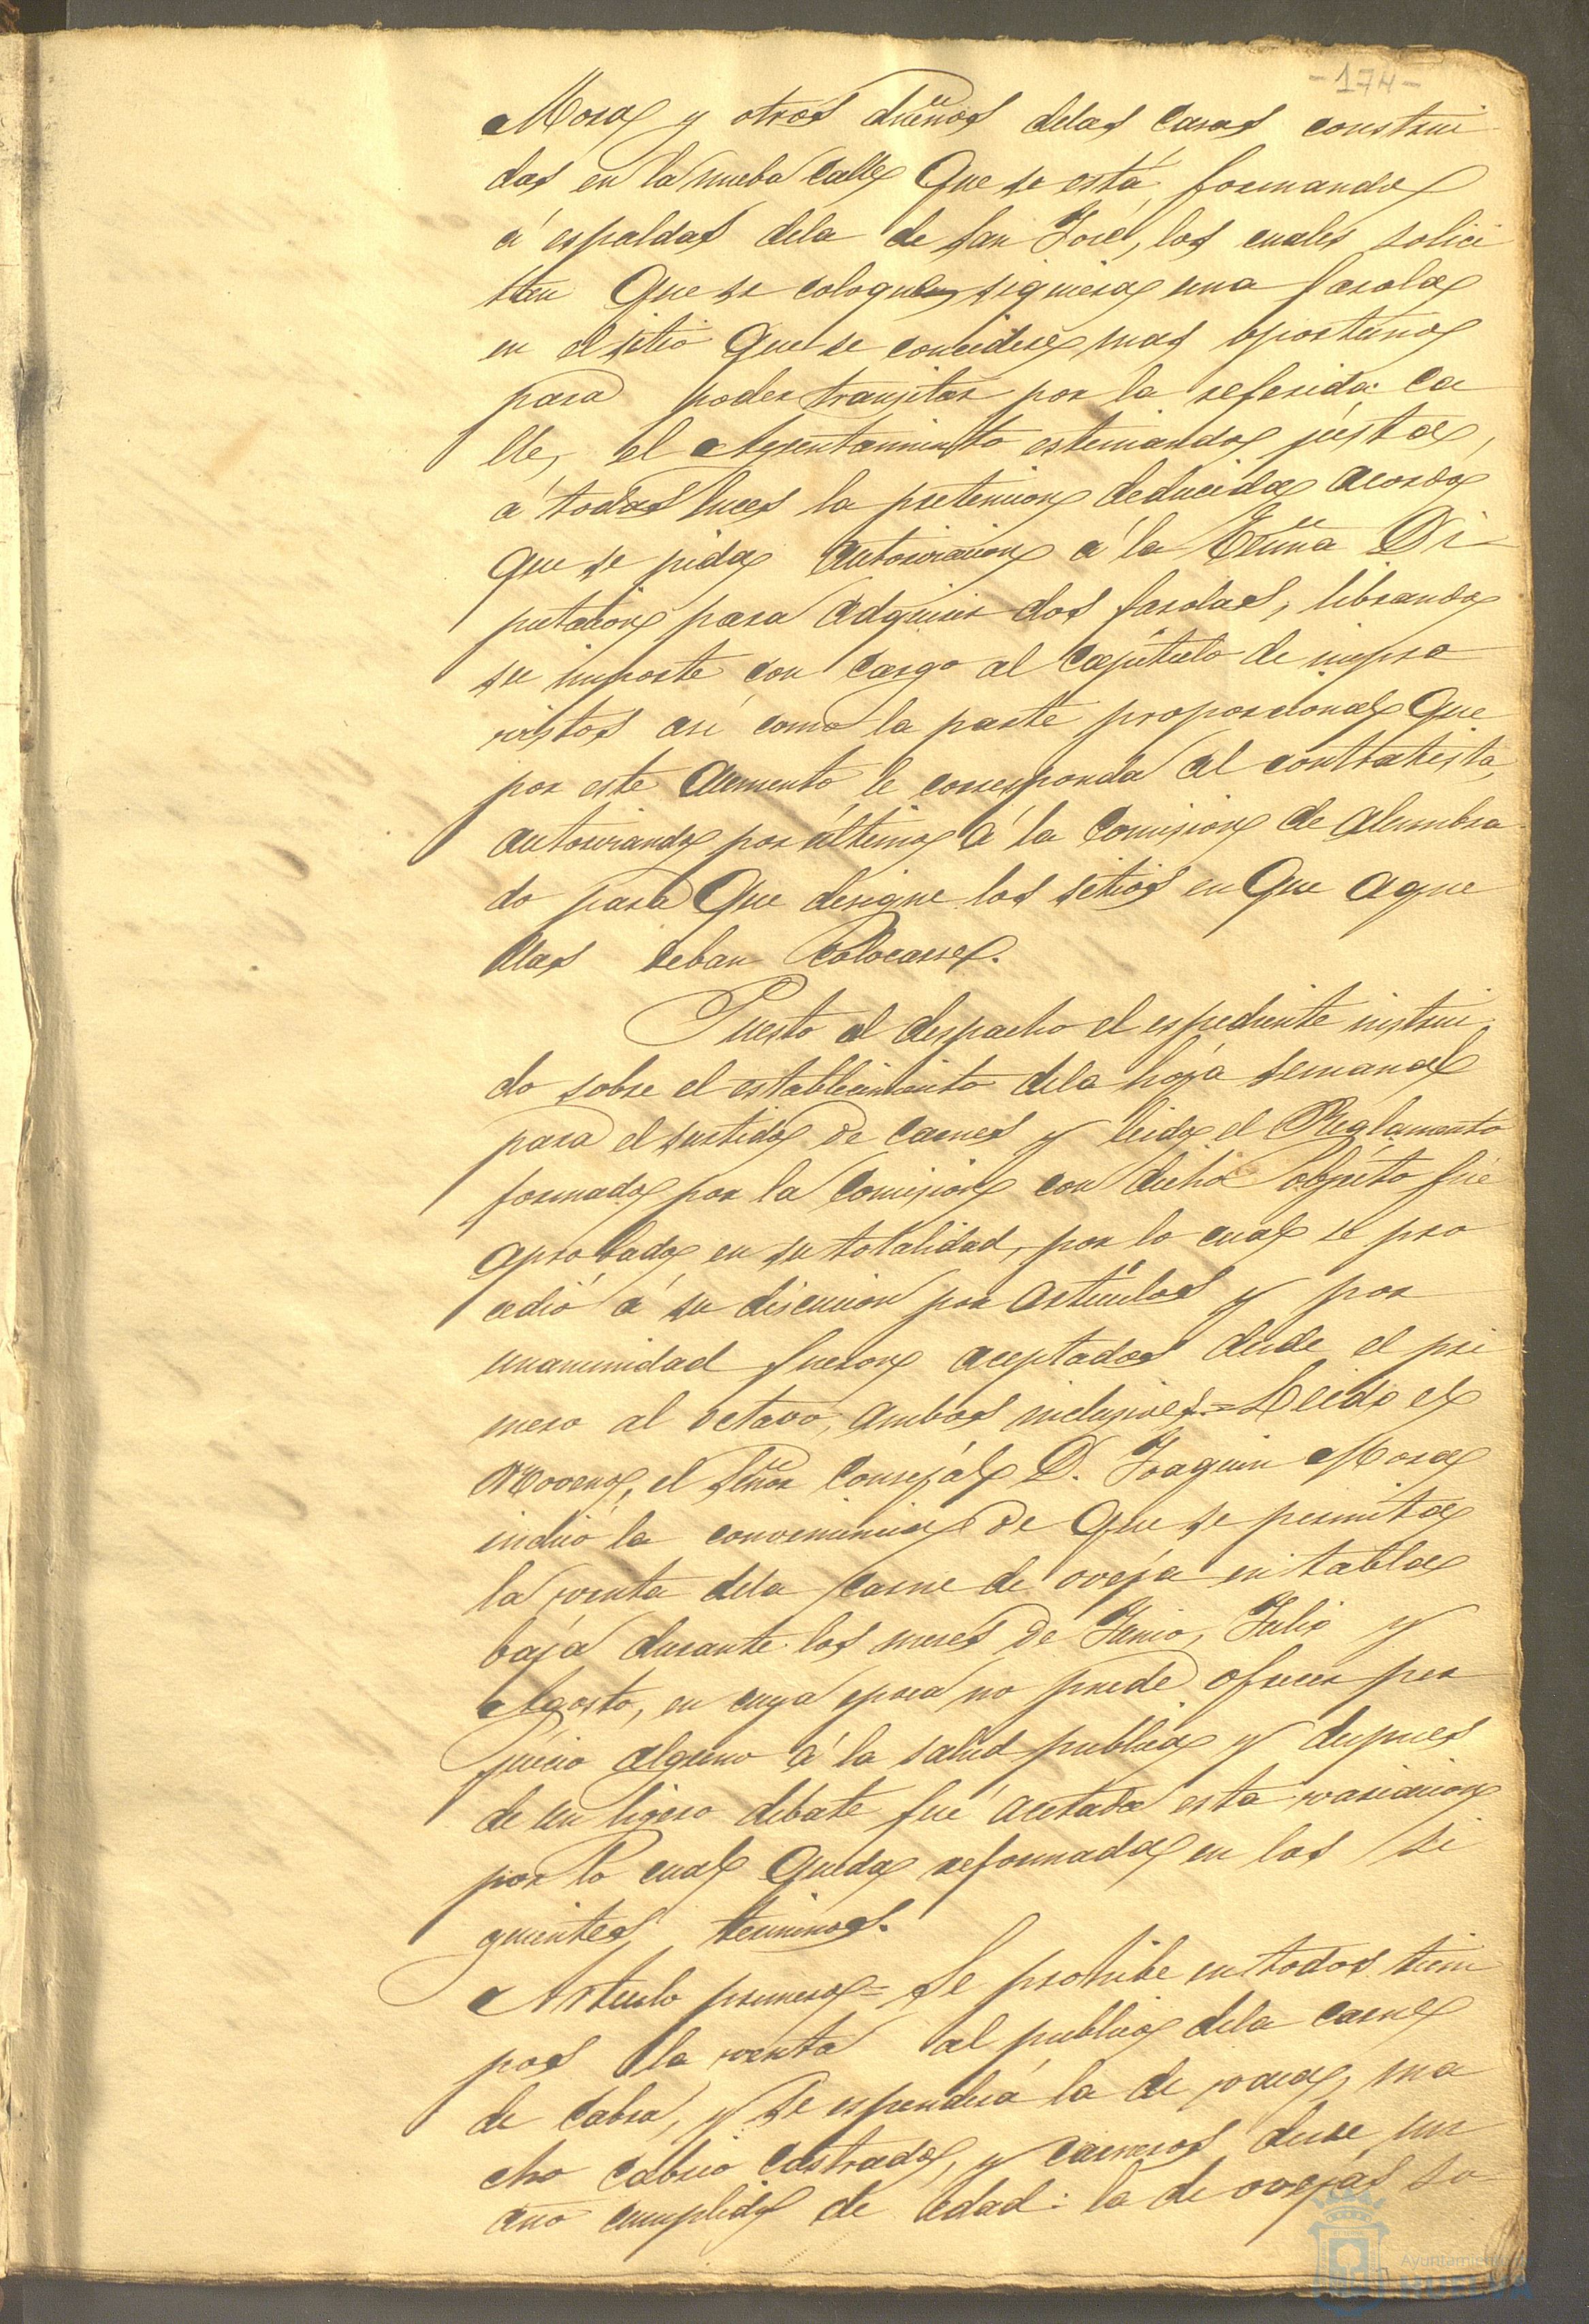 -174-
Mora y otros dueños delas casas construi
das en la nueba calle que se está formando
á espaldas dela de San José, los cuales solici
tan que se coloque siquiera una farola
en el sitio que se concidere mas oportuno
para poder transitar por la referida ca
lle, el Ayuntamiento estimando justa,
á todas luces la pretencion deducida acordó
que se pida autorizacion á la Exma Di-
putacion para adquirir dos farolas, librando
su importe con cargo al capitulo de impre
vistos asi como la parte proporcional que
por este aumento le corresponda al contratista,
autorizando por último á la Comision de alumbra
do para que designe los sitios en que aque
llas deban colocarse.
Puesto al despacho el espediente instrui
do sobre el establecimiento dela hoja semanal
para el surtido de carnes y leido el Reglamento
formado por la Comision con dicho objeto fué
aprobado en su totalidad, por lo cual se pro
cedió á su discucion por artículos y por
unanimidad fueron aceptados desde el pri
mero al octavo, ambos inclusives.= Leido el
Noveno, el Señor Consejál D. Joaquin Mora
indicó la conveniencia de que se permita
la venta dela carne de oveja en tabla
baja durante los meses de Junio, Julio y
Agosto, en cuya epoca no puede ofrecer per
juicio alguno á la salud publica y despues
de un ligero debate fué acetada esta variacion
por lo cual queda reformado en los si
guientes terminos.
Artículo primero= Se prohibe en todos tiem
pos la venta al publico dela carne
de cabra, y se espenderá la de vaca, ma
cho cabrio castrado, y carneros desde un
año cumplido de edad: la de ovejas so-
Ayuntamiento
HUELVA